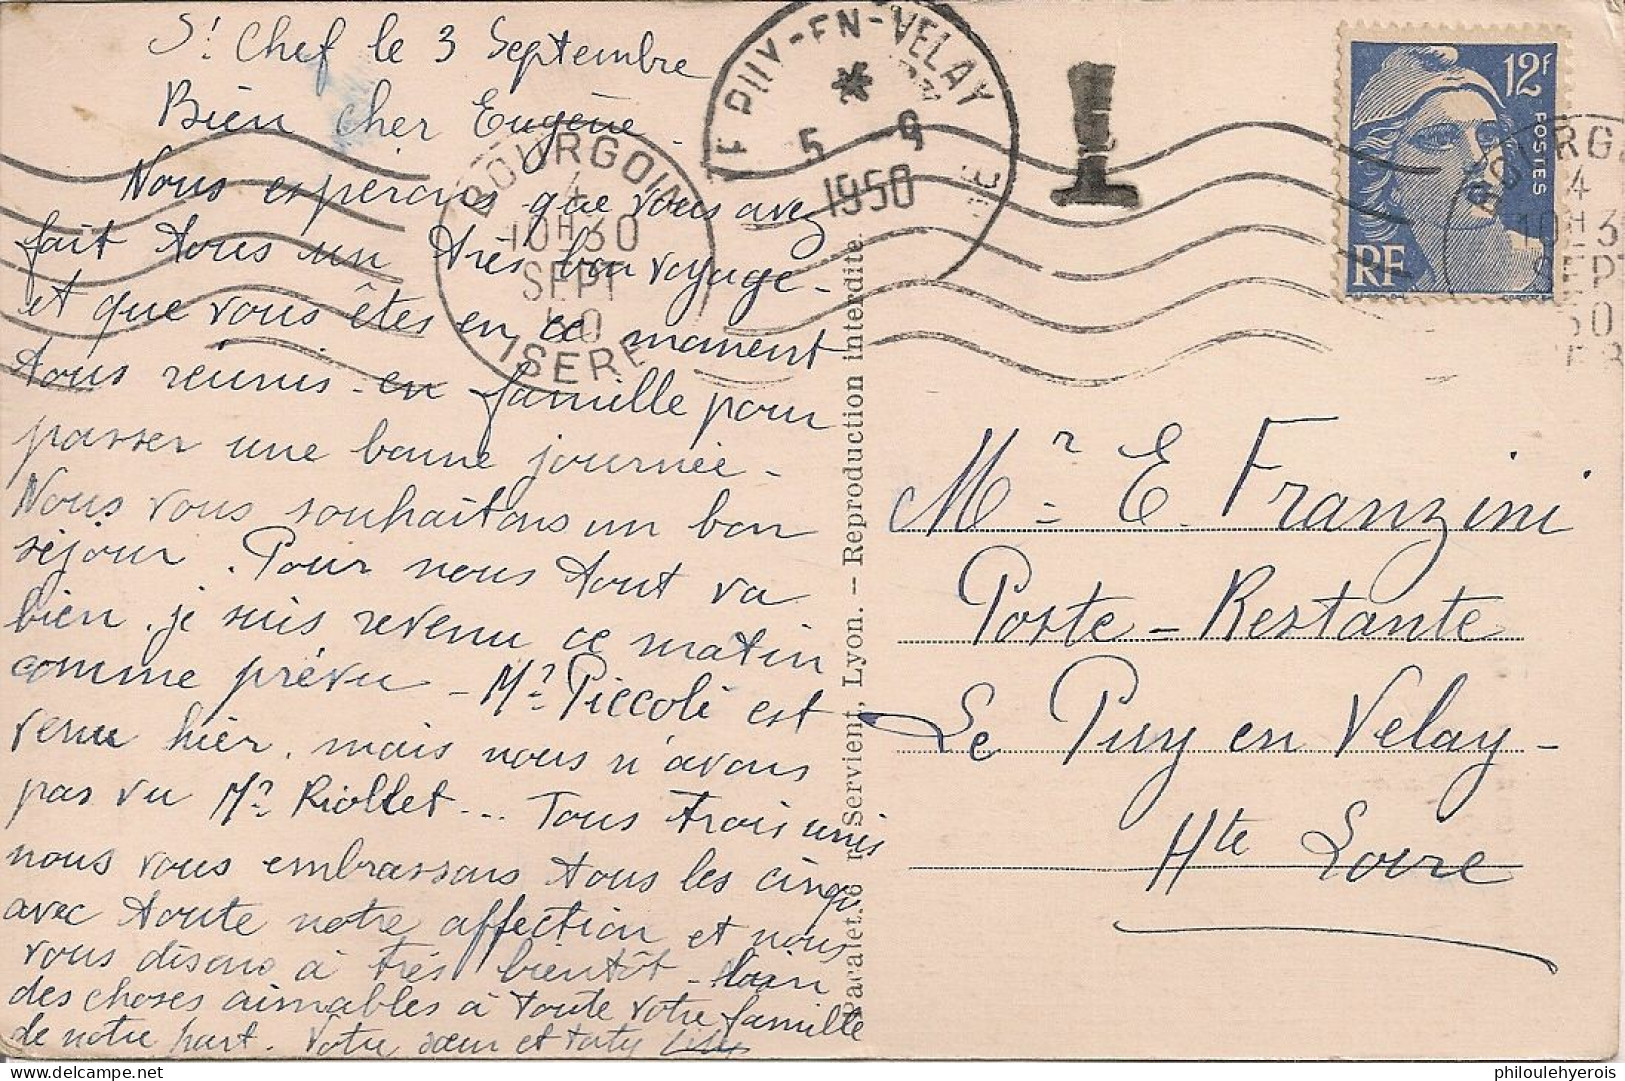 St Chef le 3 Septembre
Bien cher Eugène.
Nous esperons que vous avez
fait tous un très bon voyage -
et que vous êtes en ce moment
tous réunis - en famille pour
passer une bonne journée -
Nous vous souhaitons un bon
séjour. Pour nous tout va
bien. je suis revenu ce matin
comme prévu - Mr Piccoli est
venu hier. mais nous n'avons
pas vu Mr Riollet... Tous trois unis
nous vous embrassons tous les cinq
avec toute notre affection et nous
vous disons à très bientôt -
des choses aimables à toute votre famille
de notre part. Votre sœur et taty
BOURGOIN
4
10H30
SEPT
50
ISERE
LE PUY-EN-VELAY
5 - 9
1950
T
12F
POSTES
RF
BOURGO
4
10H3
SEPT
50
Pacalet. 6 r Servient, Lyon. - Reproduction interdite.
Mr E. Franzini
Poste - Restante
Le Puy en Velay -
Hte Loire
philoulehyerois